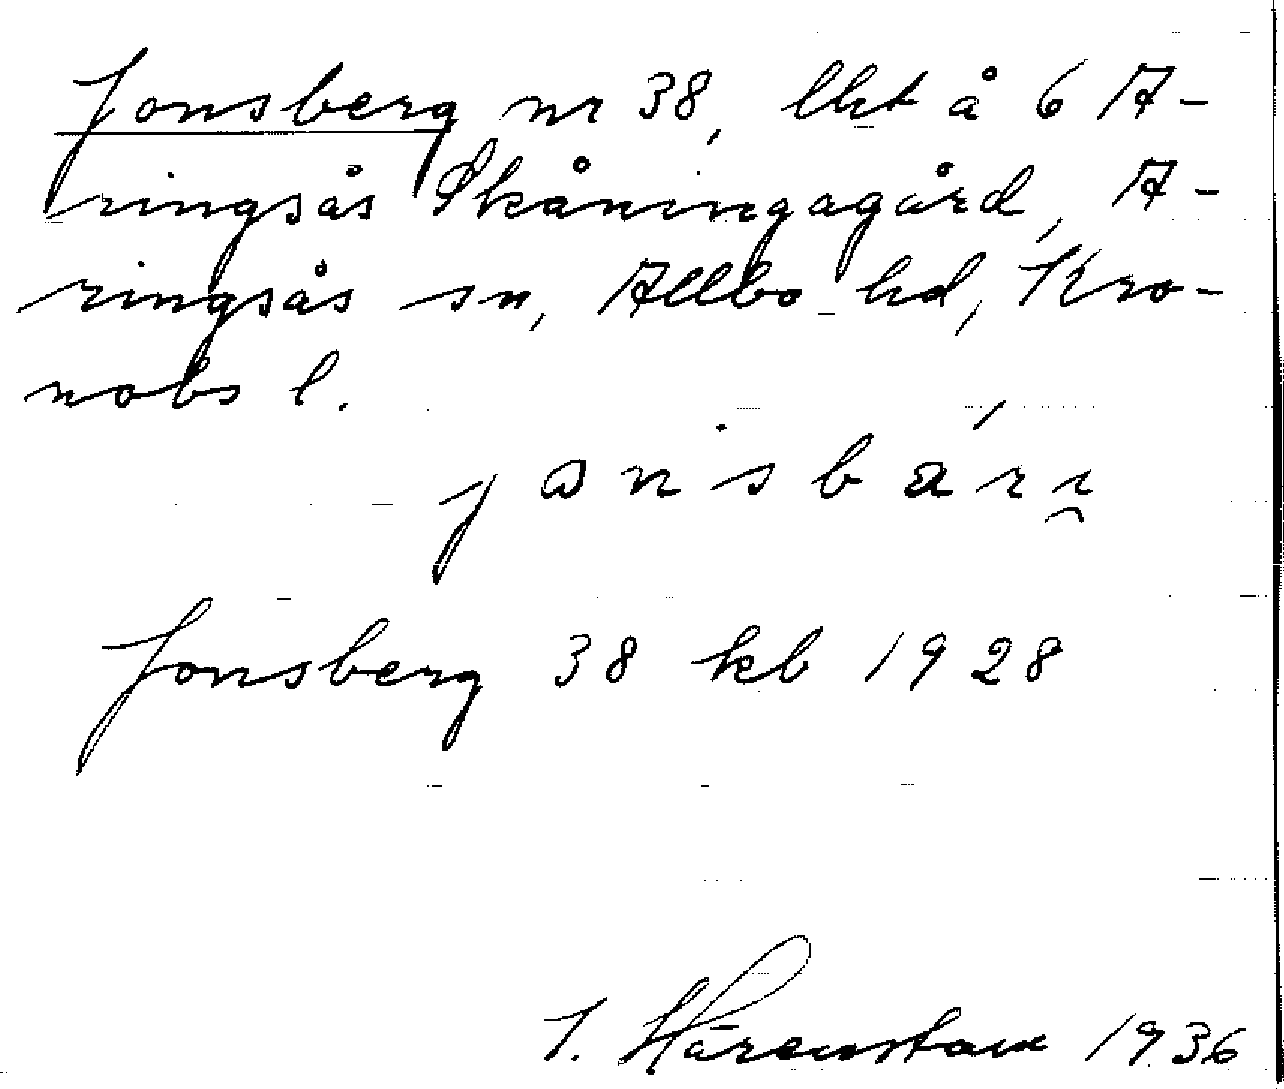 Jonsberg nr 38, lht å 6 A-
ringsås Skåningagård, A-
ringsås sn, Allbo hd, Kro-
nobs l.
Jonsberg 38 kb 1928
J. Härenstam 1936